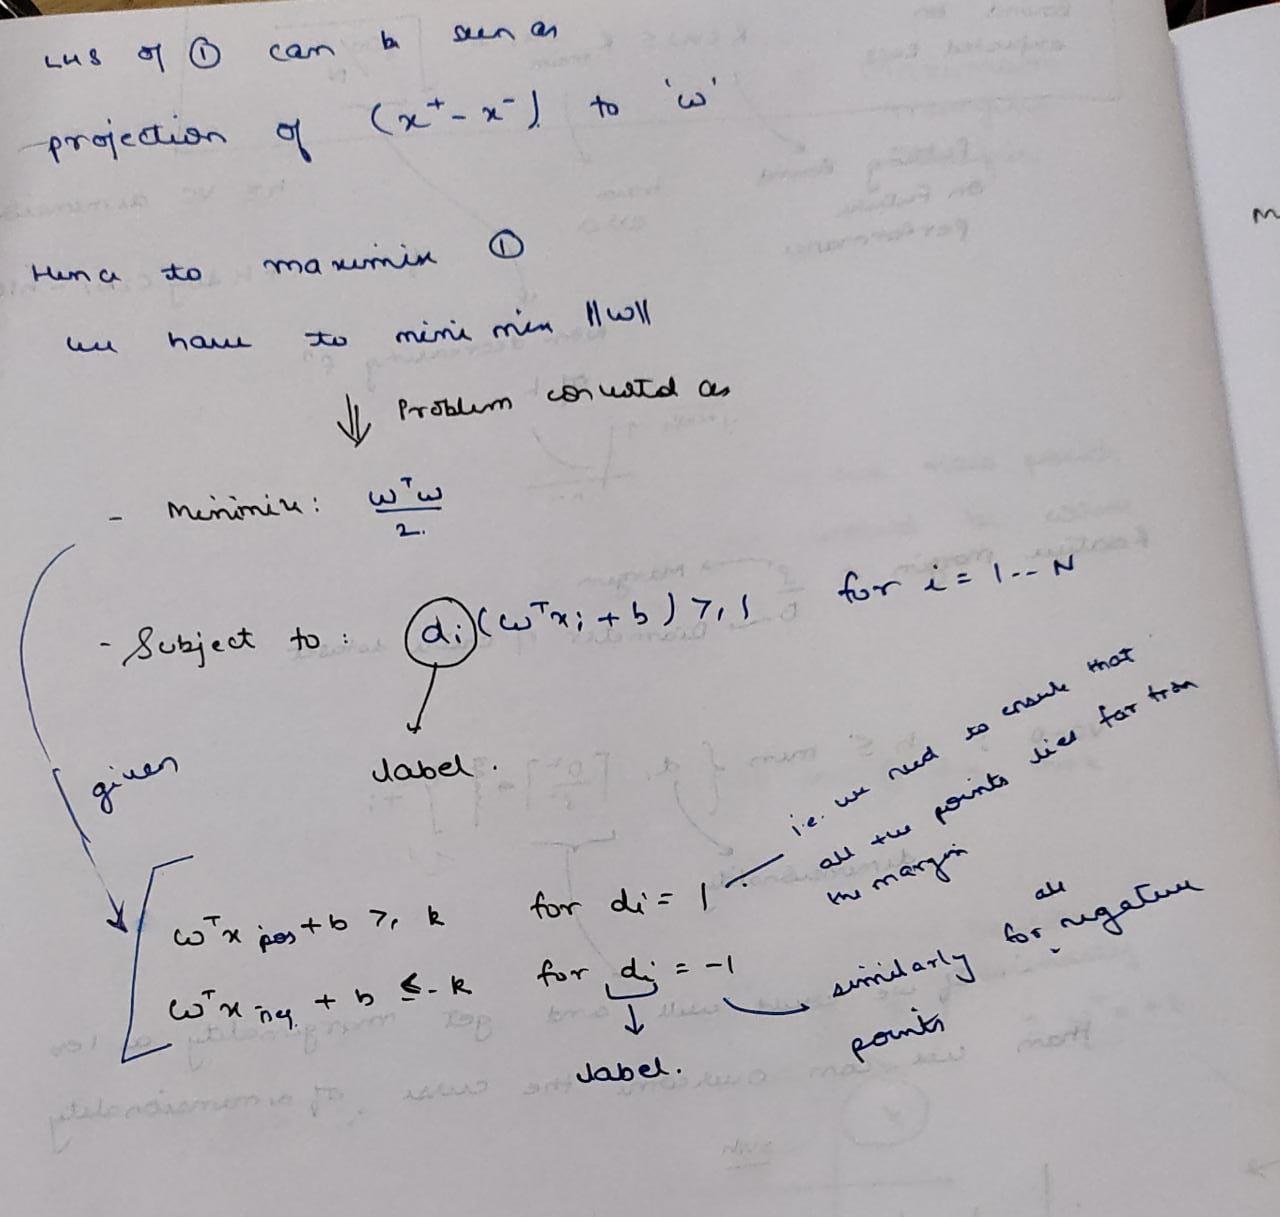 LHS of ① can be seen as
projection of (x⁺ - x⁻) to 'w'
Hence to maximize ①
we have to minimize ||w||
⇓ Problem converted as
- Minimize: wᵀw / 2.
- Subject to: dᵢ(wᵀxᵢ + b) ≥ 1 for i = 1 -- N
label.
given
wᵀx pos + b ≥ k for di = 1
i.e. we need to ensure that
all the points lies far from
the margin
wᵀx neg. + b ≤ - k for di = -1
label.
similarly for all negative
points